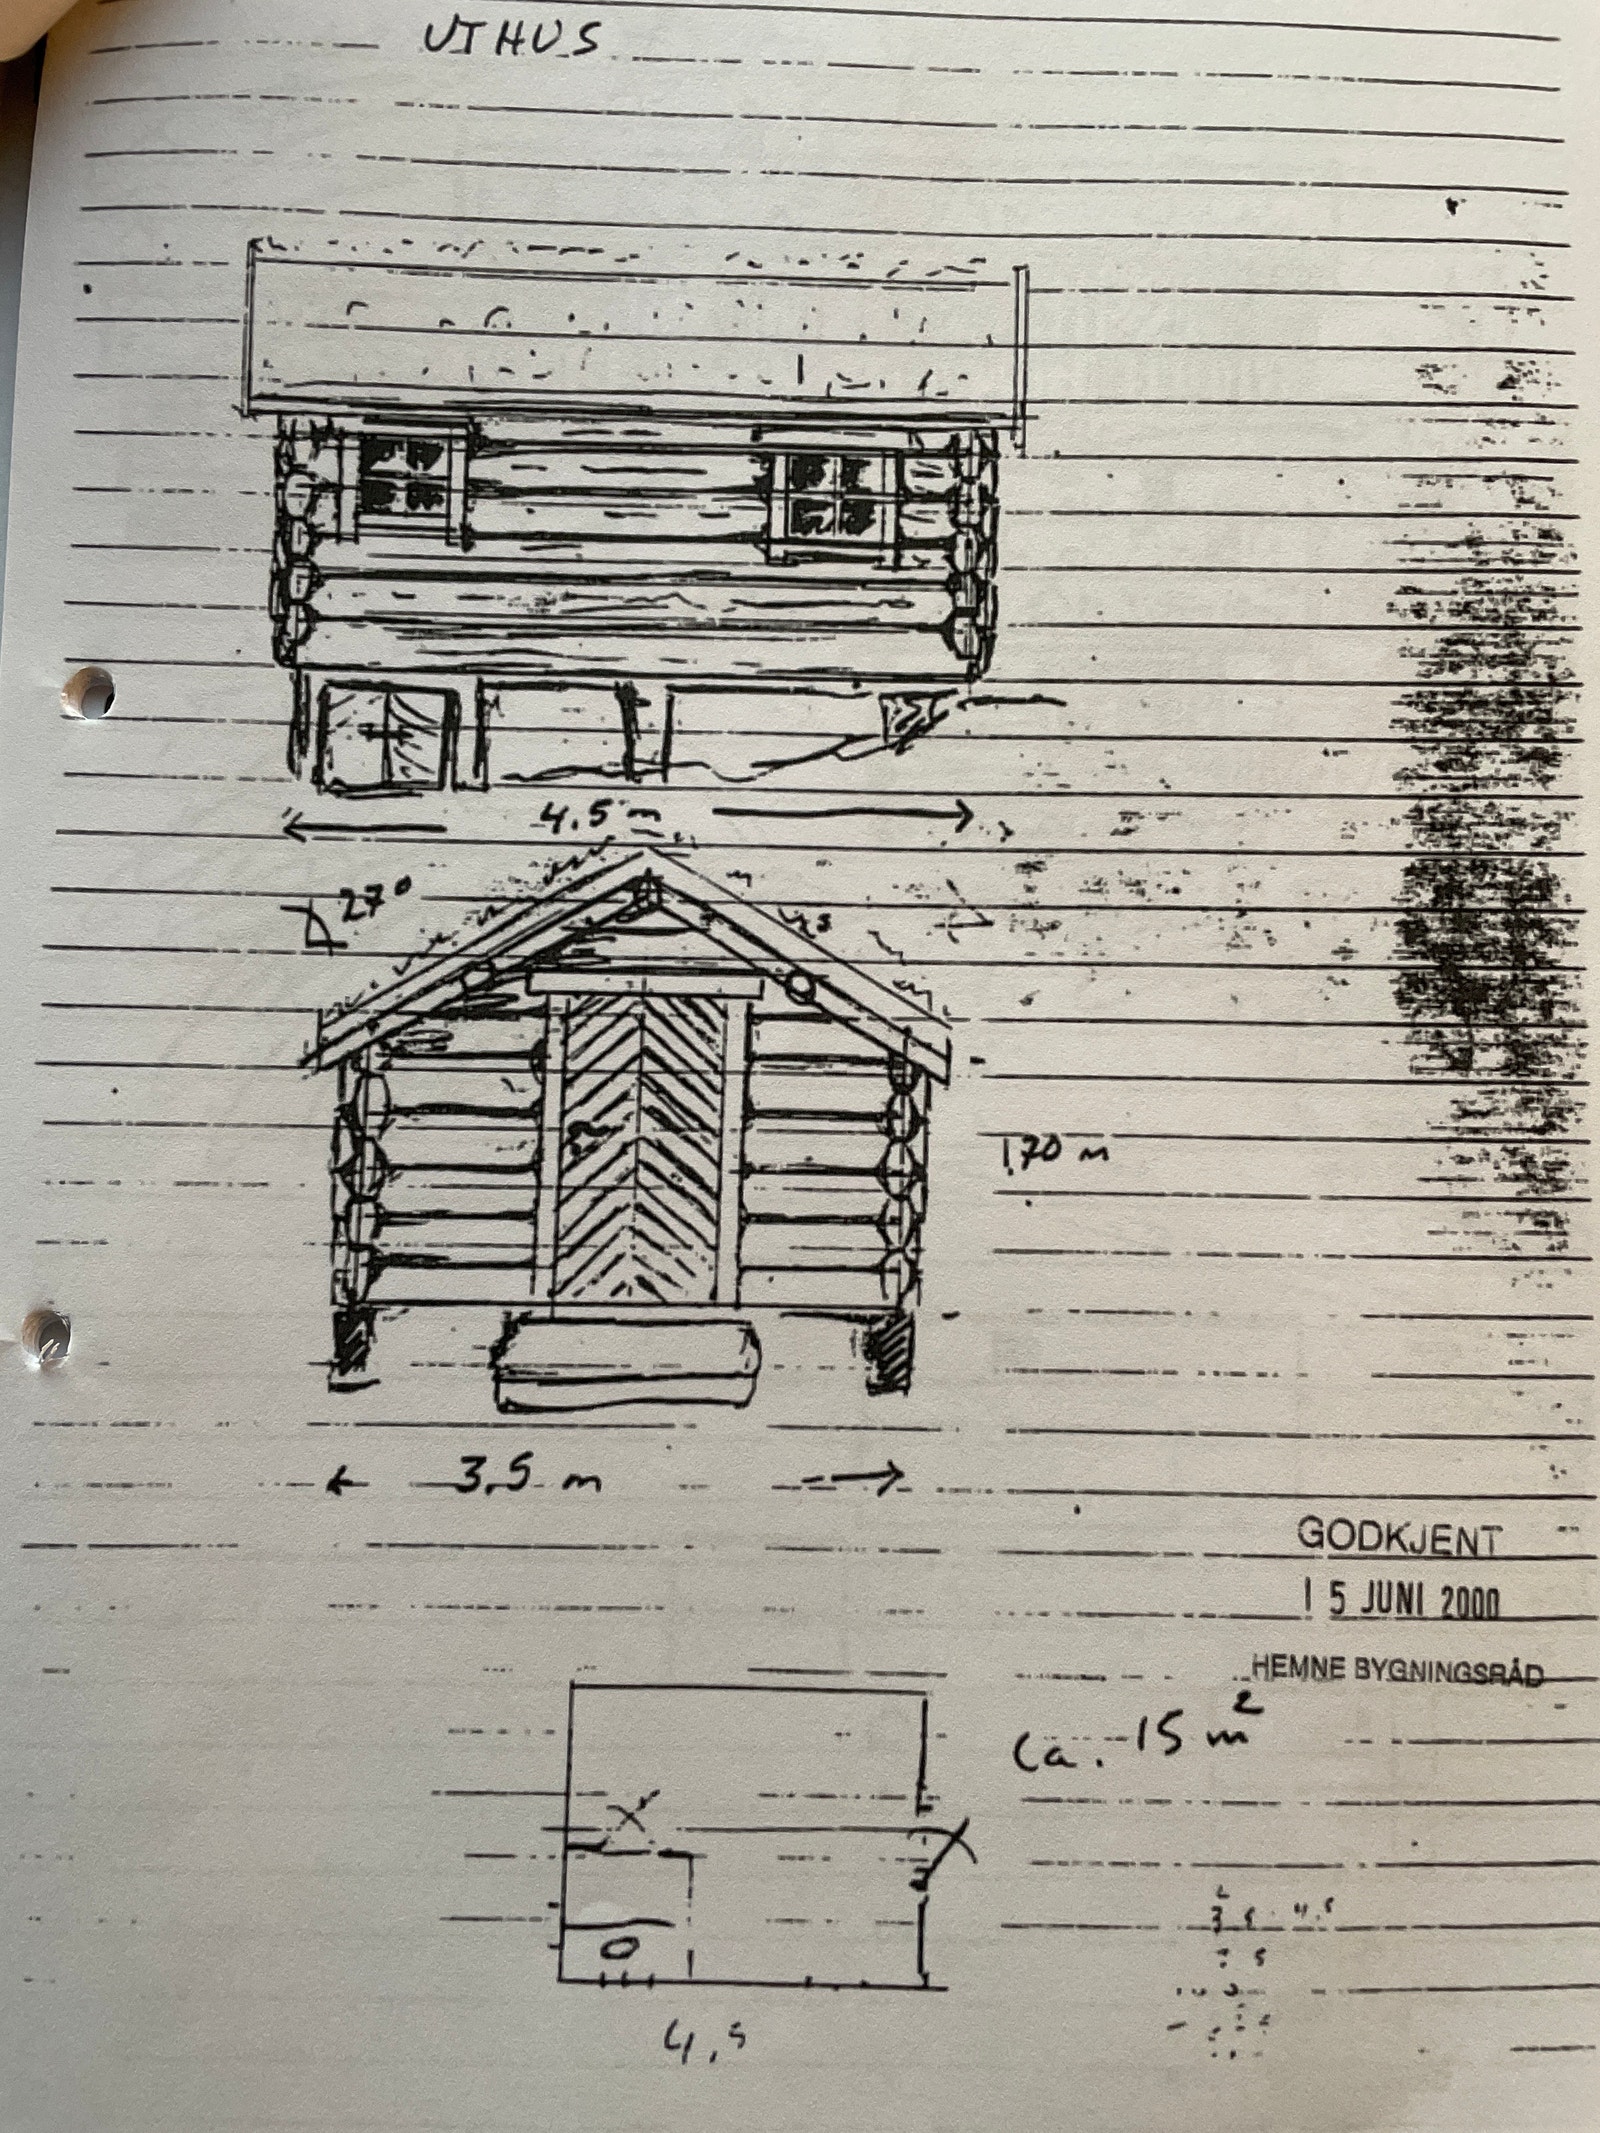 UTHUS
4,5 m
27°
1,70 m
3,5 m
GODKJENT
15 JUNI 2000
HEMNE BYGNINGSRÅD
ca. 15 m²
3 5 · 4,5
4,5